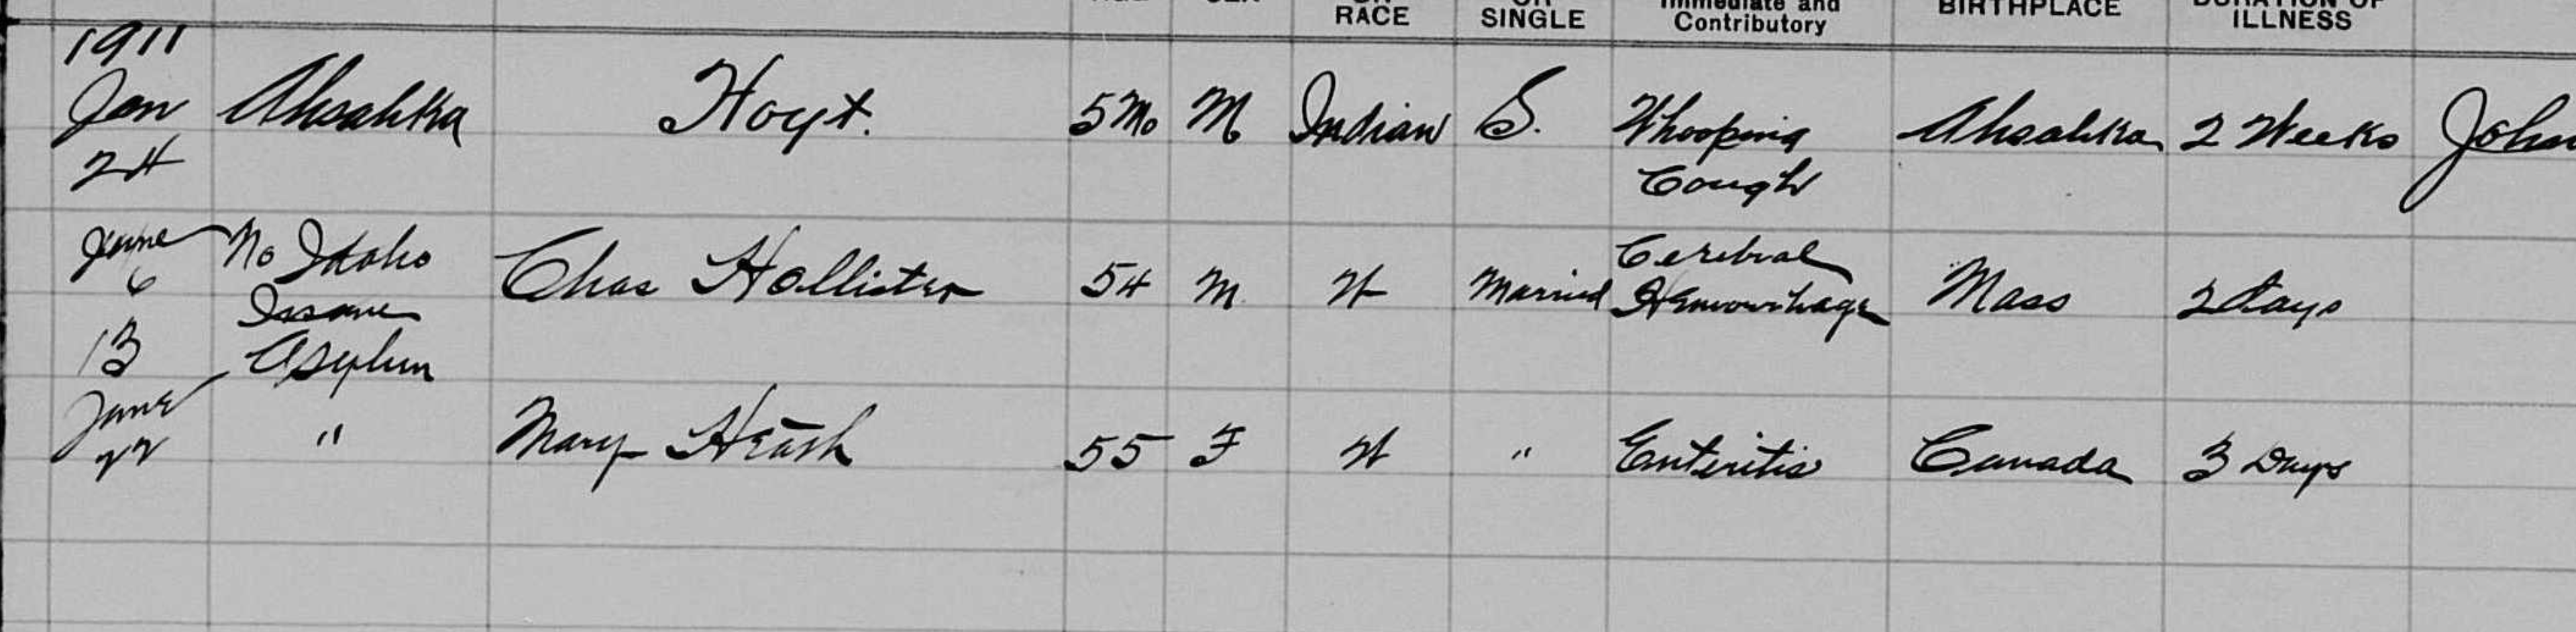 RACE SINGLE Immediate and Contributory BIRTHPLACE DURATION OF ILLNESS
1911
Jan 24 Ahsahka Hoyt. 5 Mo M Indian S. Whooping Cough Ahsahka 2 Weeks John
June 6 No Idaho Insane Asylum Chas Hollister 54 M W Married Cerebral Hemorrhage Mass 2 days
13
June 22 " Mary 55 F W " Enteritis Canada 3 Days